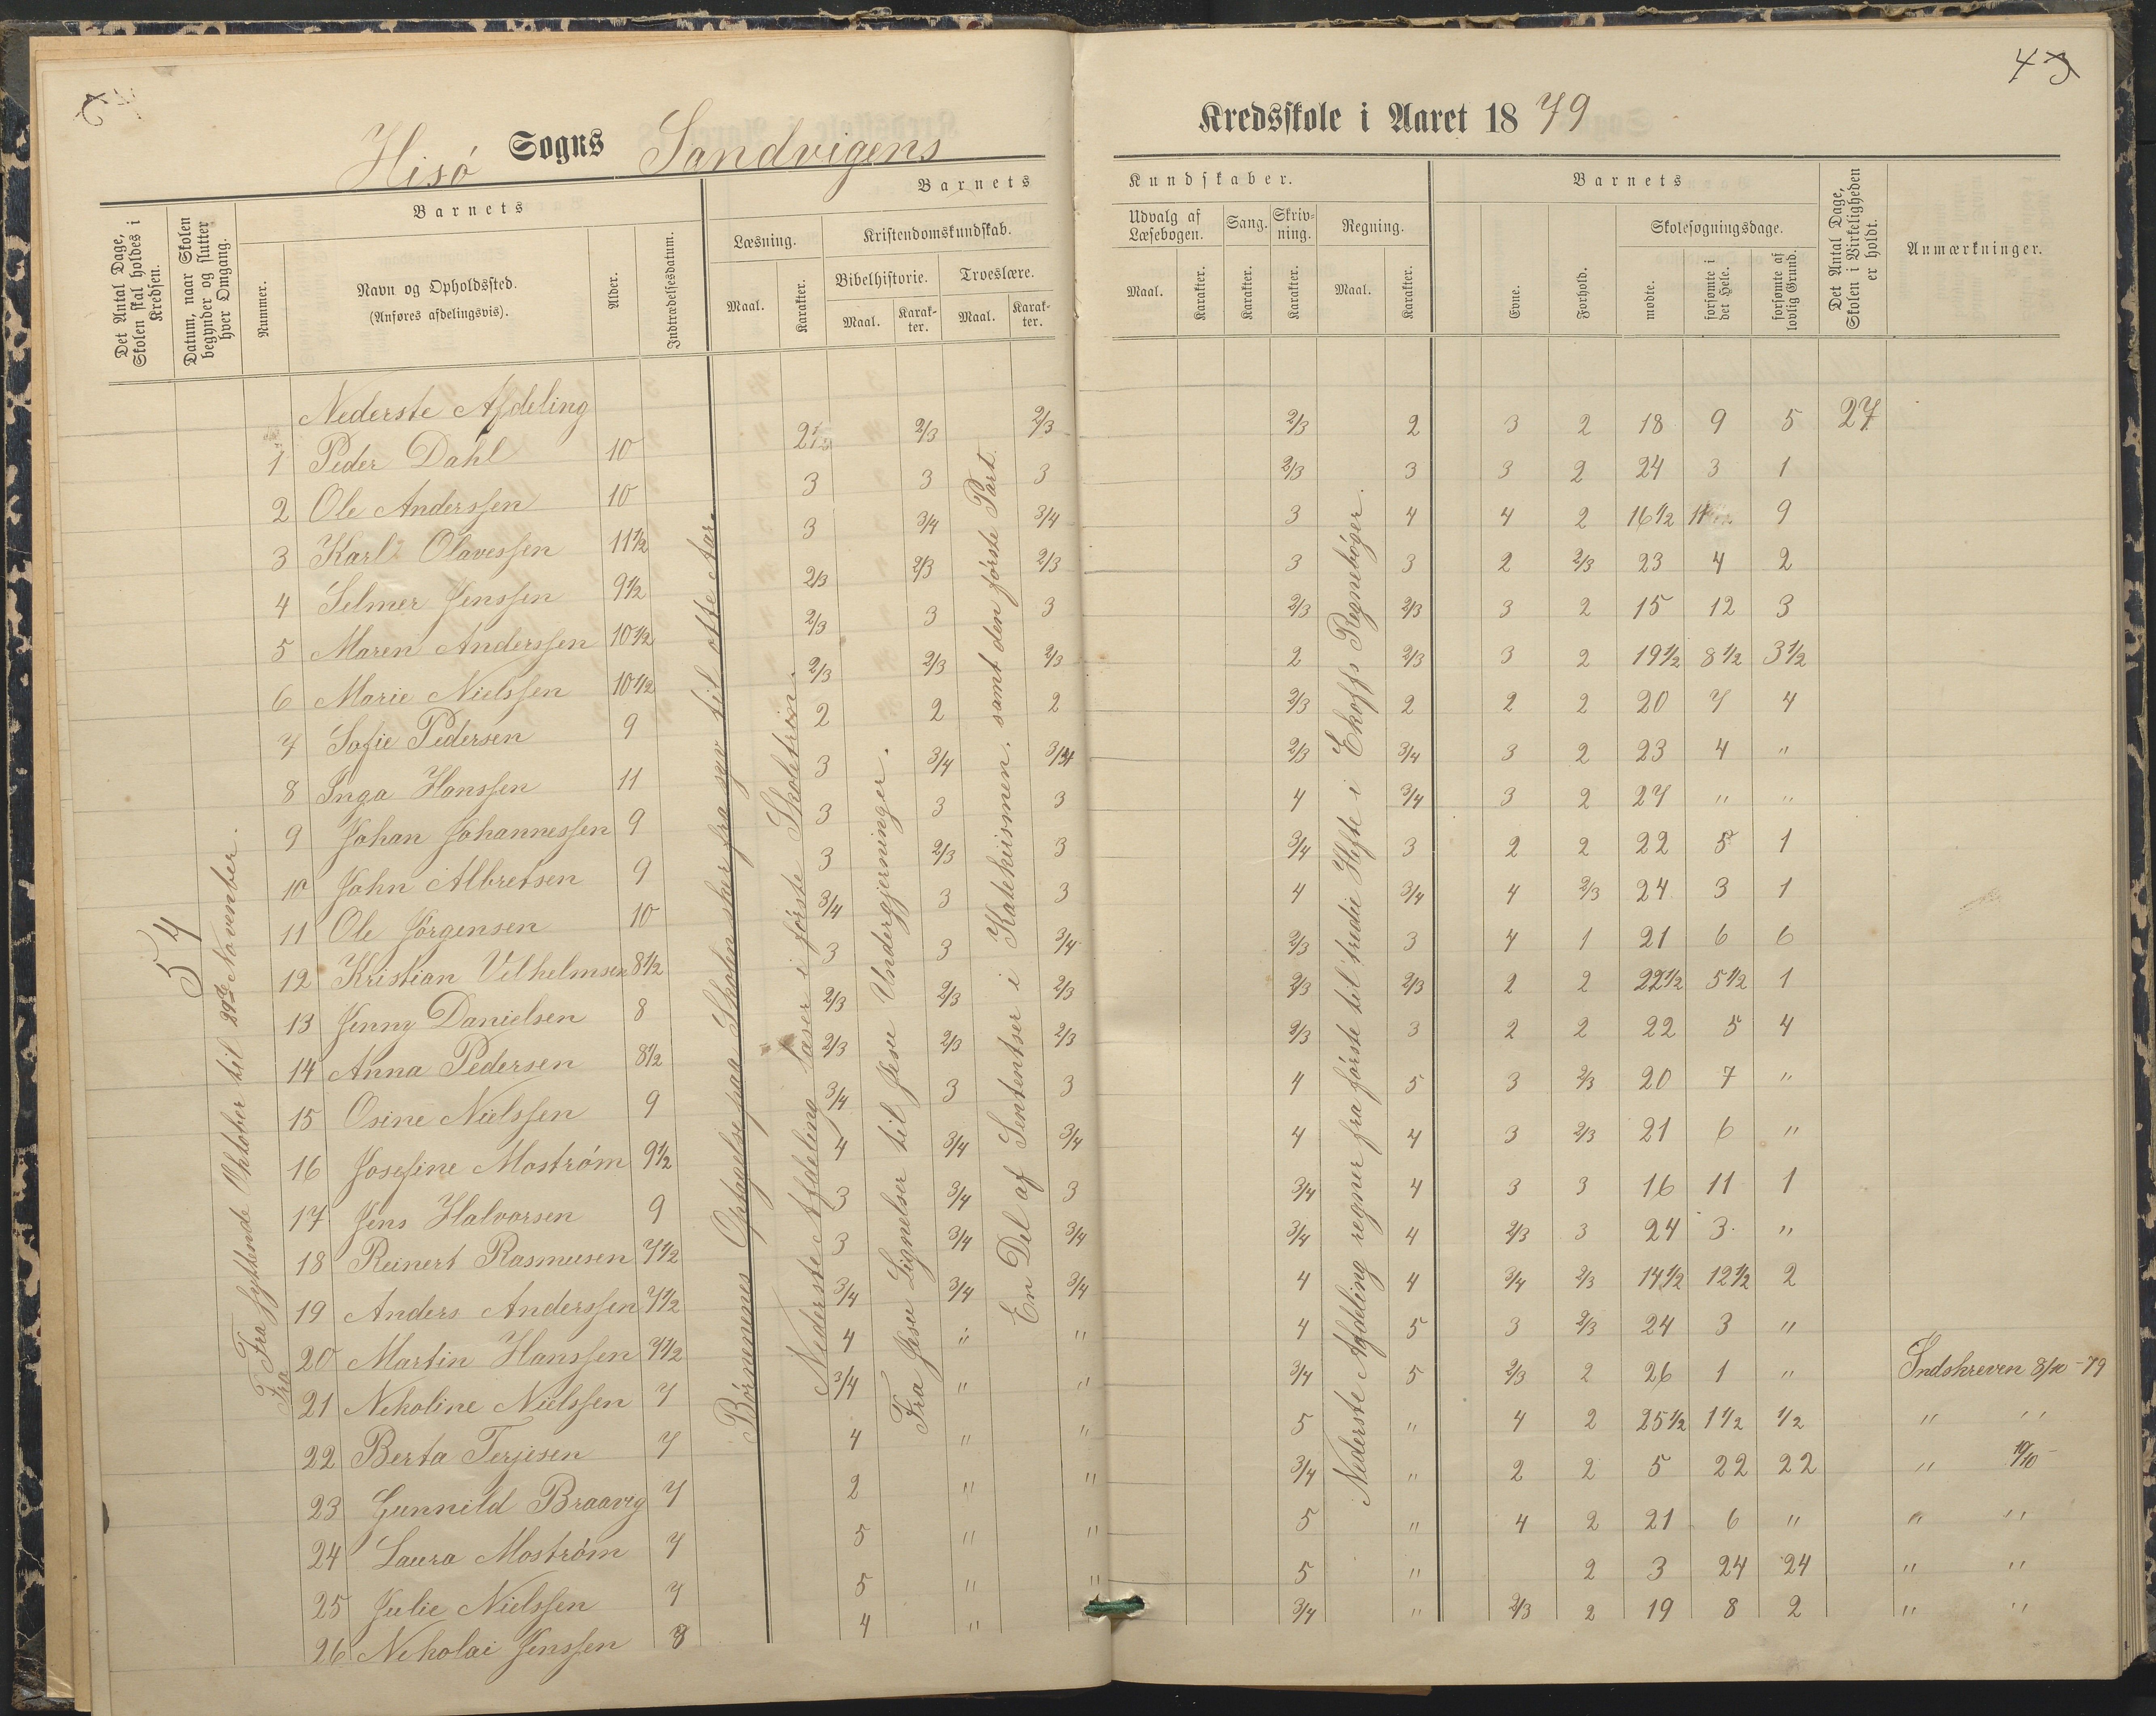 43
Hisö Sogns Sandvigens Kredsskole i Aaret 1879
Det Antal Dage, Skolen skal holdes i Kredsen.
Datum, naar Skolen begynder og slutter hver Omgang.
Barnets
Nummer.
Navn og Opholdssted.
(Anføres afdelingsvis).
Alder.
Indtrædelsesdatum.
Barnets Kundskaber.
Læsning.
Maal.
Karakter.
Kristendomskundskab.
Bibelhistorie.
Maal.
Karakter.
Troeslære.
Maal.
Karakter.
Udvalg af Læsebogen.
Maal.
Karakter.
Sang.
Karakter.
Skrivning.
Karakter.
Regning.
Maal.
Karakter.
Barnets
Evne.
Forhold.
Skolesøgningsdage.
mødte.
forsømte i det Hele.
forsømte af lovlig Grund.
Det Antal Dage, Skolen i Virkeligheden er holdt.
Anmærkninger.
54
Fra syttende Oktober til 29de November.
Børnenenes Optagelse paa Skolen sker fra syv til otte Aar.
Nederste Afdeling læser i første Skoletrin.
Fra Jesu Lignelser til Jesu Undergjerninger.
En Del af Sententser i Katekismen. samt den første Part.
Nederste Afdeling regner fra første til tredie Hefte i Ekoffs Regnebøger.
Nederste Afdeling
1 Peder Dahl 10 2/3 2/3 2/3 2 3 2 18 9 5 27
2 Ole Anderssen 10 3 3 3 2/3 3 3 2 24 3 1
3 Karl Olavessen 11 1/2 3 3/4 3/4 3 4 4 2 16 1/2 9
4 Selmer Jenssen 9 1/2 2/3 2/3 2/3 3 3 2 2/3 23 4 2
5 Maren Anderssen 10 1/2 2/3 3 3 2/3 2/3 3 2 15 12 3
6 Marie Nielssen 10 1/2 2/3 2/3 2/3 2 2/3 3 2 19 1/2 8 1/2 3 1/2
7 Sofie Pedersen 9 2 2 2 2/3 2 2 2 20 7 4
8 Inga Hanssen 11 3 3/4 3/4 2/3 3/4 3 2 23 4 "
9 Johan Johannessen 9 3 3 3 4 3/4 3 2 27 " "
10 John Albretsen 9 3 2/3 3 3/4 3 2 2 22 5 1
11 Ole Jörgensen 10 3/4 3 3 4 3/4 4 2/3 24 3 1
12 Kristian Vilhelmsen 8 1/2 3 3 3/4 2/3 3 4 1 21 6 6
13 Jenny Danielsen 8 2/3 2/3 2/3 2/3 2/3 2 2 22 1/2 5 1/2 1
14 Anna Pedersen 8 1/2 2/3 2/3 2/3 2/3 3 2 2 22 5 4
15 Osine Nielssen 9 3/4 3 3 4 5 3 2/3 20 7 "
16 Josefine Moström 9 1/2 4 3/4 3/4 4 4 3 2/3 21 6 "
17 Jens Halvorsen 9 3 3/4 3 3/4 4 3 3 16 11 1
18 Reinert Rasmusen 7 1/2 3 3/4 3/4 3/4 4 2/3 3 24 3 "
19 Anders Anderssen 7 1/2 3/4 3/4 3/4 4 4 3/4 2/3 14 1/2 12 1/2 2
20 Martin Hanssen 7 1/2 4 " " 4 5 3 2/3 24 3 "
21 Nekoline Nielssen 7 3/4 " " 3/4 5 2/3 2 26 1 " Indskreven 8/10 - 79
22 Berta Terjesen 7 4 " " 5 " 4 2 25 1/2 1 1/2 1/2 " "
23 Gunnild Braaveg 7 2 " " 3/4 " 2 2 5 22 22 " 10/10
24 Laura Moström 7 5 " " 5 " 4 2 21 6 " " "
25 Julie Nielssen 7 5 " " 5 " 2 3 24 24 " "
26 Nekolai Jenssen 8 4 " 3/4 " 2/3 2 19 8 2 " "